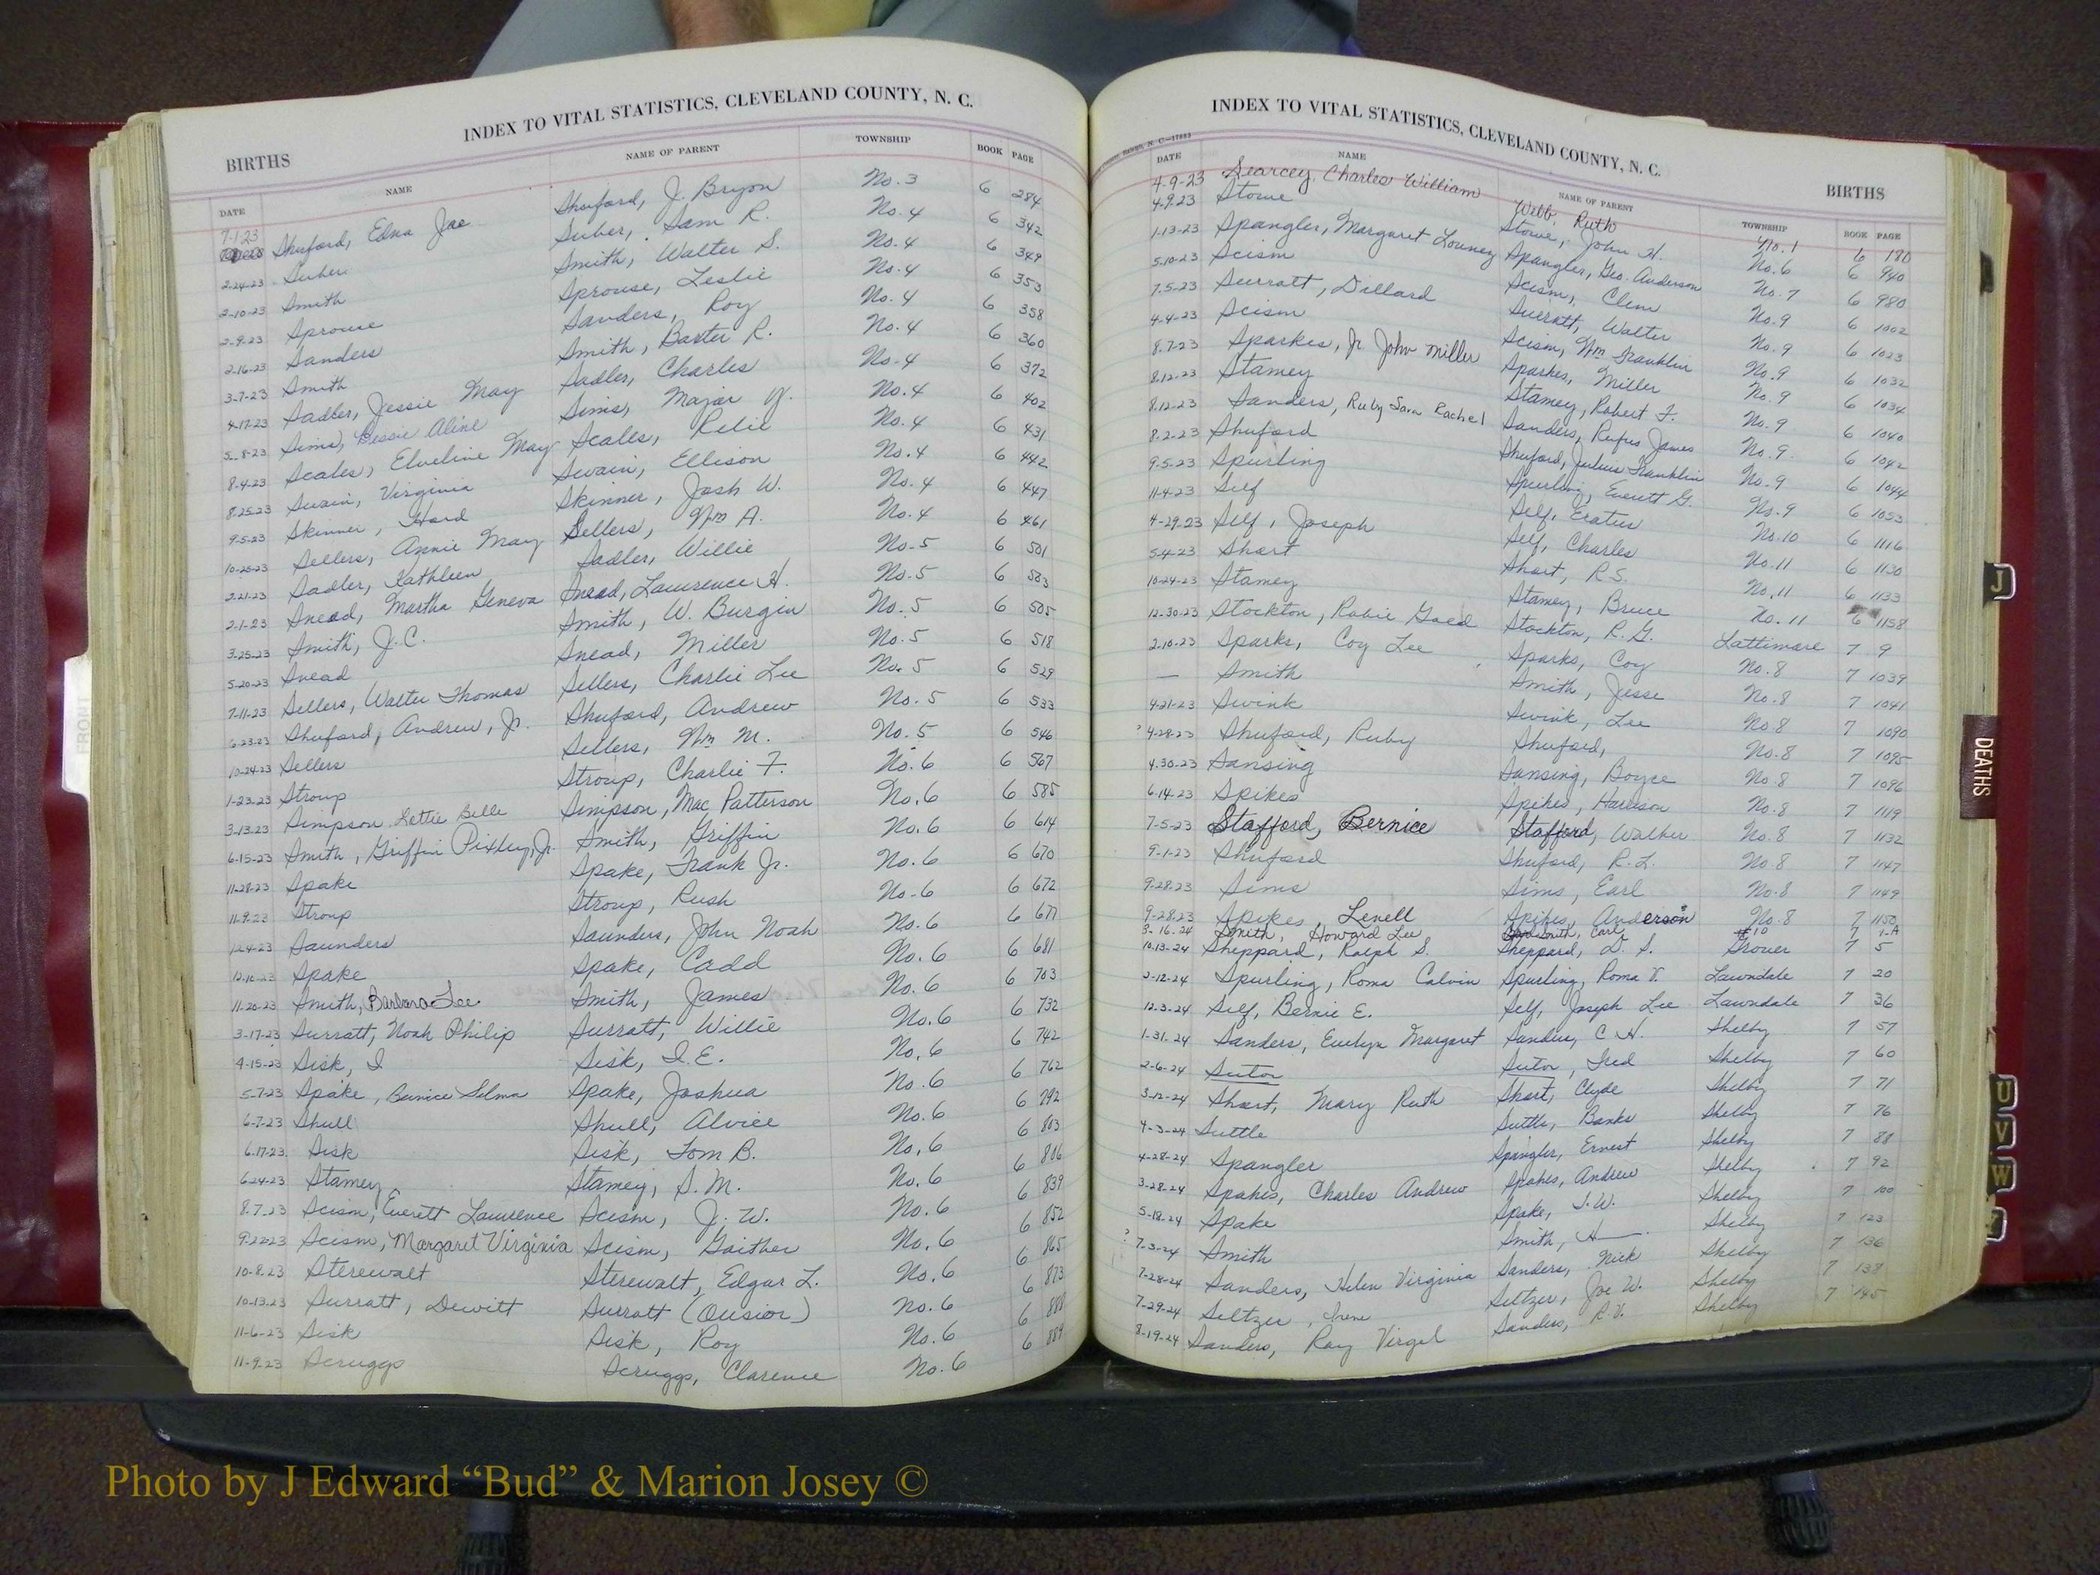 INDEX TO VITAL STATISTICS, CLEVELAND COUNTY, N. C.
BIRTHS
DATE NAME NAME OF PARENT TOWNSHIP BOOK PAGE
7-1-23 Shuford, Edna Jae Shuford, J. Bryon No. 3 6 284
2-24-23 Suber Suber, Sam R. No. 4 6 342
2-10-23 Smith Smith, Walter S. No. 4 6 349
2-9-23 Sprouse Sprouse, Leslie No. 4 6 353
2-16-23 Sanders Sanders, Roy No. 4 6 358
3-7-23 Smith Smith, Baxter R. No. 4 6 360
4-17-23 Sadler, Jessie May Sadler, Charles No. 4 6 372
5-8-23 Sims, Bessie Aline Sims, Major No. 4 6 402
8-4-23 Scales, Elveline May Scales, Relie No. 4 6 431
8-25-23 Swain, Virginia Swain, Ellison No. 4 6 442
9-5-23 Skinner, Hard Skinner, Josh W. No. 4 6 447
10-25-23 Sellers, Annie May Sellers, Wm A. No. 4 6 461
2-21-23 Sadler, Kathleen Sadler, Willie No. 5 6 501
2-1-23 Snead, Martha Geneva Snead, Lawrence H. No. 5 6 503
3-25-23 Smith, J.C. Smith, W. Burgin No. 5 6 505
5-20-23 Snead Snead, Miller No. 5 6 518
7-11-23 Sellers, Walter Thomas Sellers, Charlie Lee No. 5 6 529
6-23-23 Shuford, Andrew, Jr. Shuford, Andrew No. 5 6 533
10-24-23 Sellers Sellers, Wm M. No. 5 6 546
1-23-23 Stroup Stroup, Charlie F. No. 6 6 567
3-13-23 Simpson, Lettie Belle Simpson, Mac Patterson No. 6 6 585
6-15-23 Smith, Griffin Pixley, Jr. Smith, Griffin No. 6 6 614
11-28-23 Spake Spake, Frank Jr. No. 6 6 670
11-9-23 Stroup Stroup, Rush No. 6 6 672
1-24-23 Saunders Saunders, John Noah No. 6 6 677
Spake Spake, Cadd No. 6 6 681
11-20-23 Smith, Barbara Lee Smith, James No. 6 6 703
3-17-23 Surratt, Noah Philip Surratt, Willie No. 6 6 732
4-15-23 Sisk, I Sisk, I. E. No. 6 6 742
5-7-23 Spake, Bernice Selma Spake, Joshua No. 6 6 762
6-7-23 Shull Shull, Alvice No. 6 6 792
6-17-23 Sisk Sisk, Tom B. No. 6 6 803
6-24-23 Stamey Stamey, S. M. No. 6 6 806
8-7-23 Scism, Everett Lawrence Scism, J. W. No. 6 6 839
9-22-23 Scism, Margaret Virginia Scism, Gaither No. 6 6 852
10-8-23 Sterewalt Sterewalt, Edgar L. No. 6 6 865
10-13-23 Surratt, Dewitt Surratt (Ousior) No. 6 6 873
11-6-23 Sisk Sisk, Roy No. 6 6 888
11-9-23 Scruggs Scruggs, Clarence No. 6 6 889
INDEX TO VITAL STATISTICS, CLEVELAND COUNTY, N. C.
BIRTHS
DATE NAME NAME OF PARENT TOWNSHIP BOOK PAGE
4-9-23 Searcey, Charles William Webb, Ruth No. 1 6 180
4-9-23 Stowe Stowe, John H. No. 6 6 940
1-13-23 Spangler, Margaret Louney Spangler, Geo. Anderson No. 7 6 980
5-10-23 Scism Scism, Clem No. 9 6 1002
7-5-23 Surratt, Dillard Surratt, Walter No. 9 6 1023
4-4-23 Scism Scism, Wm Franklin No. 9 6 1032
8-7-23 Sparkes, Jr. John Miller Sparkes, Miller No. 9 6 1034
8-12-23 Stamey Stamey, Robert F. No. 9 6 1040
8-12-23 Sanders, Ruby Sara Rachel Sanders, Rufus James No. 9 6 1042
8-2-23 Shuford Shuford, Julius Franklin No. 9 6 1044
9-5-23 Spurling Spurling, Everett G. No. 9 6 1053
11-4-23 Self Self, Eratus No. 10 6 1116
4-29-23 Self, Joseph Self, Charles No. 11 6 1130
5-4-23 Short Short, R.S. No. 11 6 1133
10-24-23 Stamey Stamey, Bruce No. 11 6 1158
12-30-23 Stockton, Robie Gaed Stockton, R. G. Lattimore 7 9
2-10-23 Sparks, Coy Lee Sparks, Coy No. 8 7 1039
— Smith Smith, Jesse No. 8 7 1041
4-21-23 Swink Swink, Lee No. 8 7 1090
4-28-23 Shuford, Ruby Shuford, No. 8 7 1095
4-30-23 Sansing Sansing, Boyce No. 8 7 1096
6-14-23 Spikes Spikes, Harrison No. 8 7 1119
7-5-23 Stafford, Bernice Stafford, Walker No. 8 7 1132
9-1-23 Shuford Shuford, R. L. No. 8 7 1147
9-28-23 Sims Sims, Earl No. 8 7 1149
9-28-23 Spikes, Lenell Spikes, Anderson No. 8 7 1150
3-16-24 Smith, Howard Lee Smith, Earl #10 7 1-A
10-13-24 Sheppard, Ralph S. Sheppard, D. S. Grover 7 5
2-12-24 Spurling, Roma Calvin Spurling, Roma V. Lawndale 7 20
12-3-24 Self, Bernie E. Self, Joseph Lee Lawndale 7 36
1-31-24 Sanders, Evelyn Margaret Sanders, C H. Shelby 7 57
2-6-24 Sutor Sutor, Fred Shelby 7 60
3-12-24 Short, Mary Ruth Short, Clyde Shelby 7 71
4-3-24 Suttle Suttle, Banks Shelby 7 76
4-28-24 Spangler Spangler, Ernest Shelby 7 88
3-28-24 Spakes, Charles Andrew Spakes, Andrew Shelby 7 92
5-18-24 Spake Spake, I. W. Shelby 7 100
7-3-24 Smith Smith, H— Shelby 7 123
7-28-24 Sanders, Helen Virginia Sanders, Nick Shelby 7 136
7-29-24 Seltzer, Irene Seltzer, Joe W. Shelby 7 138
8-19-24 Sanders, Ray Virgil Sanders, R V. Shelby 7 145
FRONT
J
DEATHS
U
V
W
Photo by J Edward “Bud” & Marion Josey ©